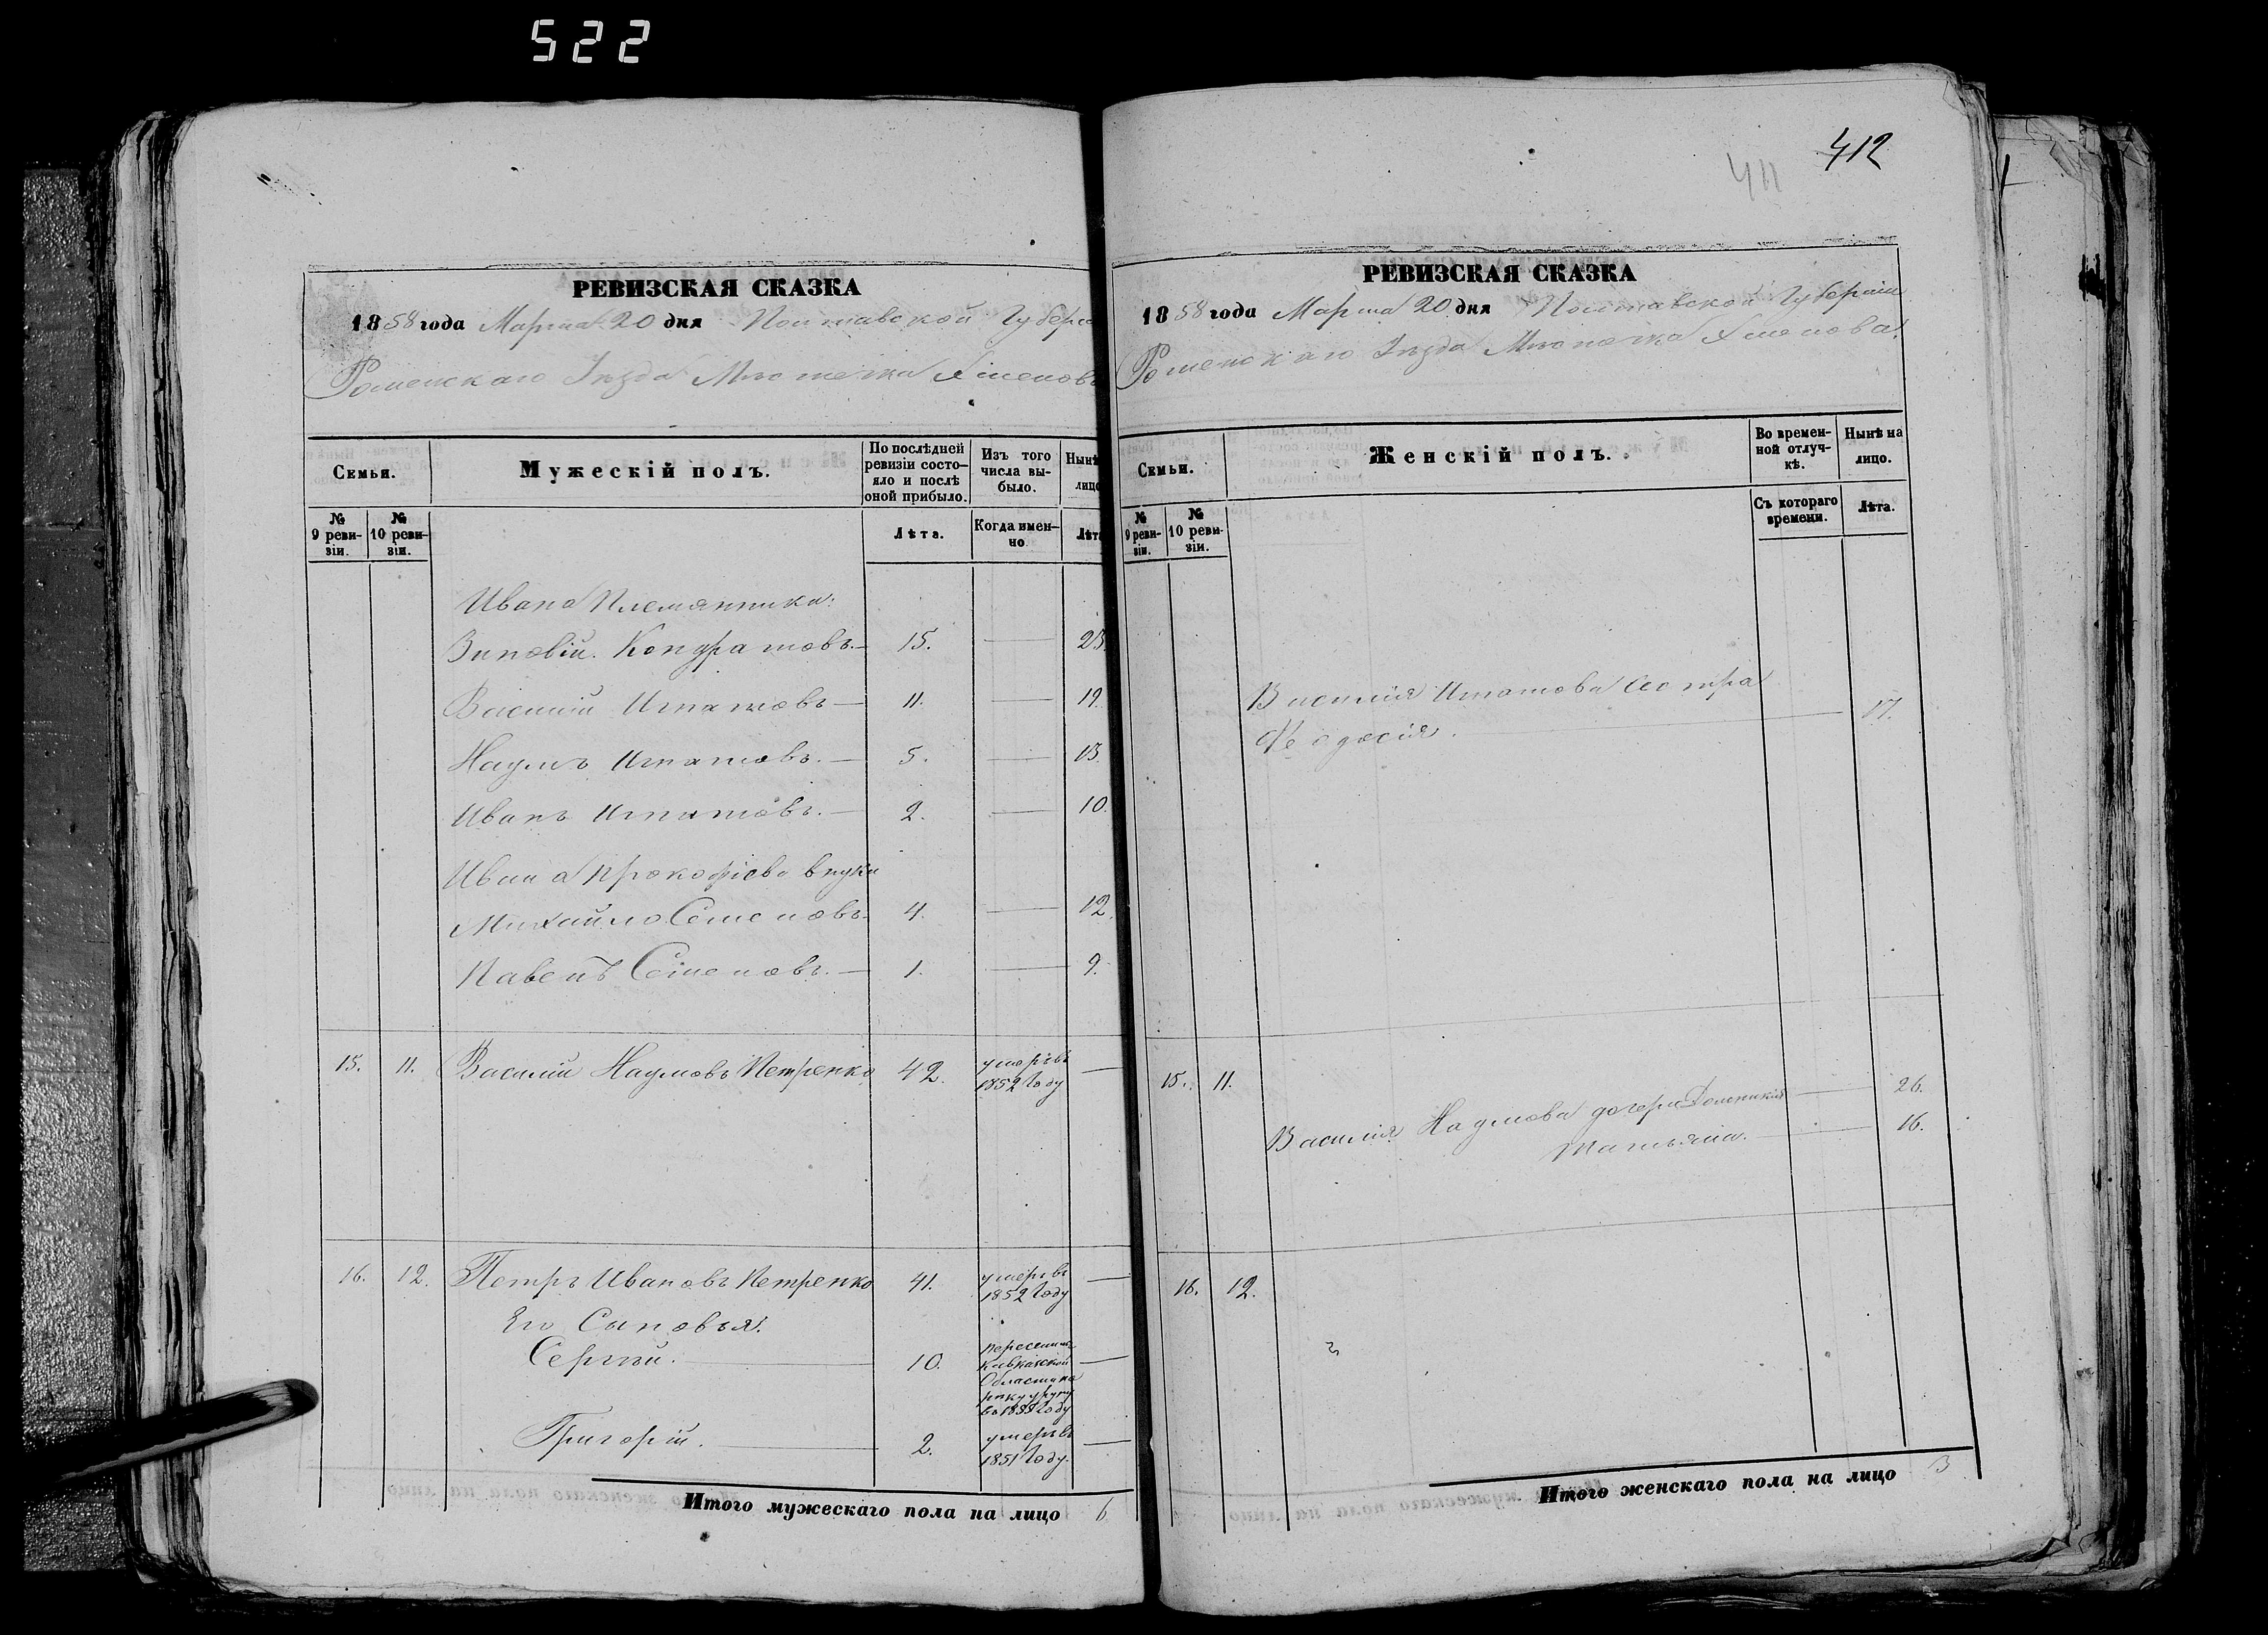 522
РЕВИЗСКАЯ СКАЗКА
1858 года Марта 20 дня Полтавской Губер
Роменскаго Уѣзда Мѣстечка Хмелова
Семьи.
Мужескій полъ.
По послѣдней ревизіи состо-
яло и послѣ
оной прибыло.
Изъ того
числа вы-
было.
Нынѣ
лицо
№ 9 реви-
зіи.
№ 10 реви-
зіи.
Лѣта.
Когда имен-
но
Лѣта
Ивана Племянники:
Зиновій Кондратовъ. — 15. — 23.
Василій Игнатовъ — 11. — 19.
Наумъ Игнатовъ. — 5. — 13.
Иванъ Игнатовъ. — 2. — 10.
Ивана Прокофіева внуки
Михайло Семеновъ 4. — 12.
Павелъ Семеновъ. — 1. — 9.
15. 11. Василій Наумовъ Петренко 42. умеръ въ
1852 Году —
16. 12. Петръ Ивановъ Петренко 41. умеръ въ
1852 Году —
Его Сыновья.
Сергѣй. — 10. —
Кавказской
Области на
рѣку Урупъ
Григорій. — 2. умеръ въ
1851 Году. —
Итого мужескаго пола на лицо 6
412
411
РЕВИЗСКАЯ СКАЗКА
1858 года Марта 20 дня Полтавской Губерніи
Роменскаго Уѣзда Мѣстечка Хмелова
Семьи.
Женскій полъ.
Во времен-
ной отлуч-
кѣ.
Нынѣ на
лицо.
№ 9 реви-
зіи.
№ 10 реви-
зіи.
Съ котораго
времени.
Лѣта.
Василія Игнатова Сестра
Феодосія. — 17.
15. 11.
Василія Наумова дочери Доминикія — 26.
Татьяна. — 16.
16. 12.
Итого женскаго пола на лицо 3